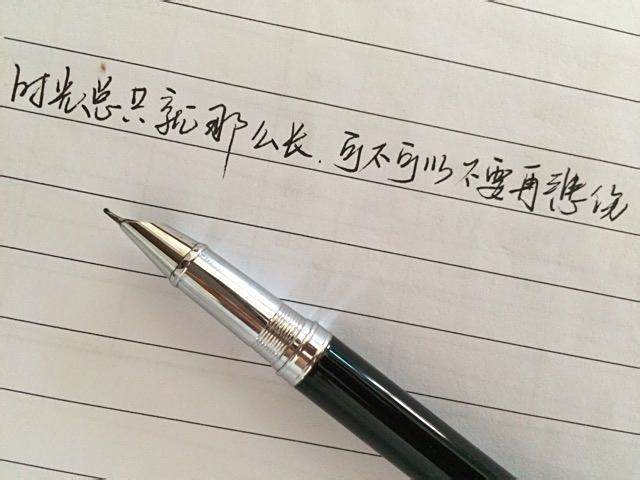 时光总共就那么长.可不可以不要再悲伤